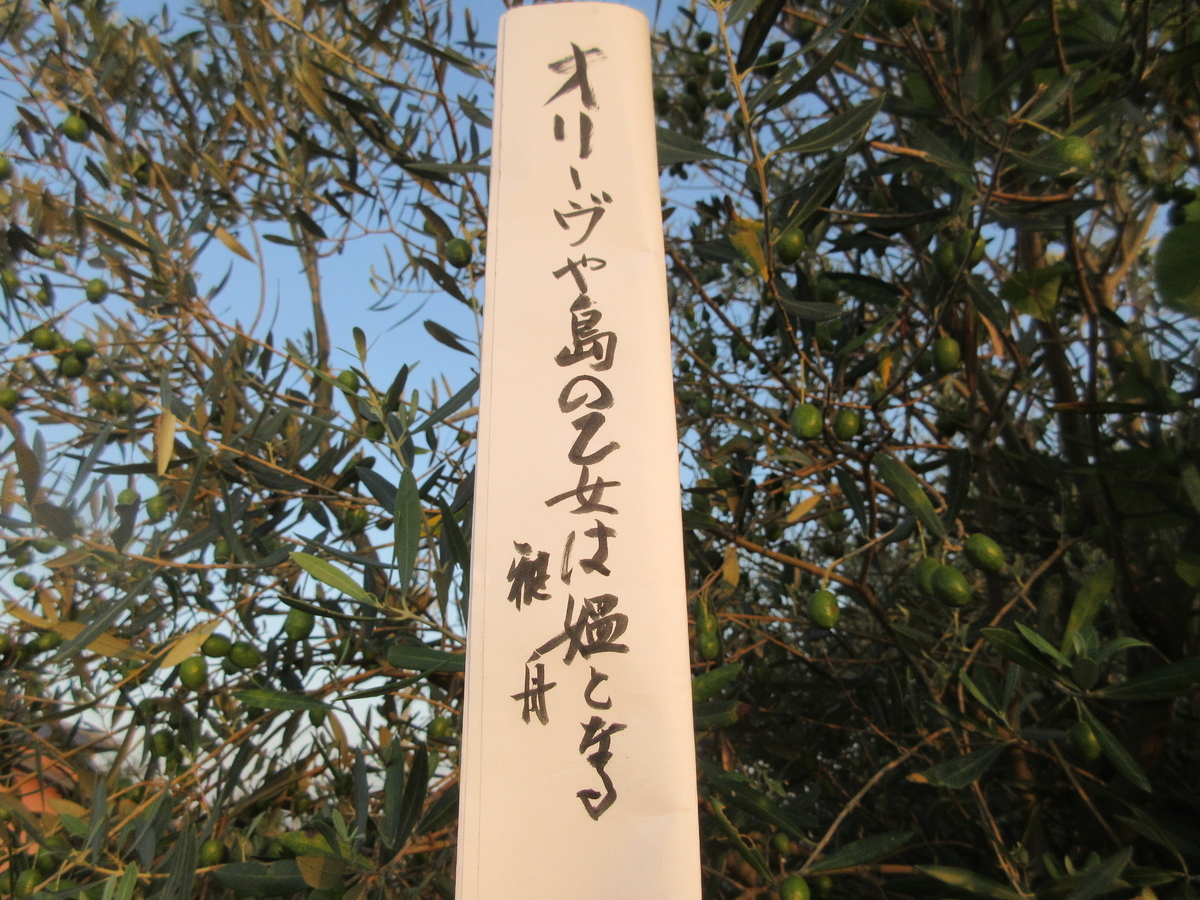 オリーヴや島の乙女は媼となる
雅舟